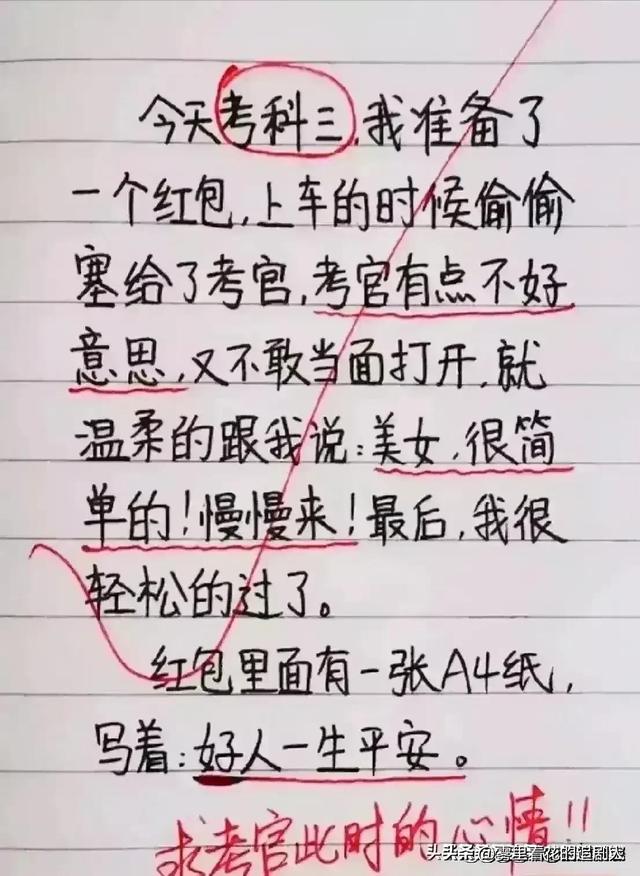 今天考科三,我准备了
一个红包,上车的时候偷偷
塞给了考官,考官有点不好
意思,又不敢当面打开,就
温柔的跟我说:美女,很简
单的!慢慢来!最后,我很
轻松的过了。
红包里面有一张A4纸,
写着:好人一生平安。
求考官此时的心情!!
头条 @雾里看花的追剧达